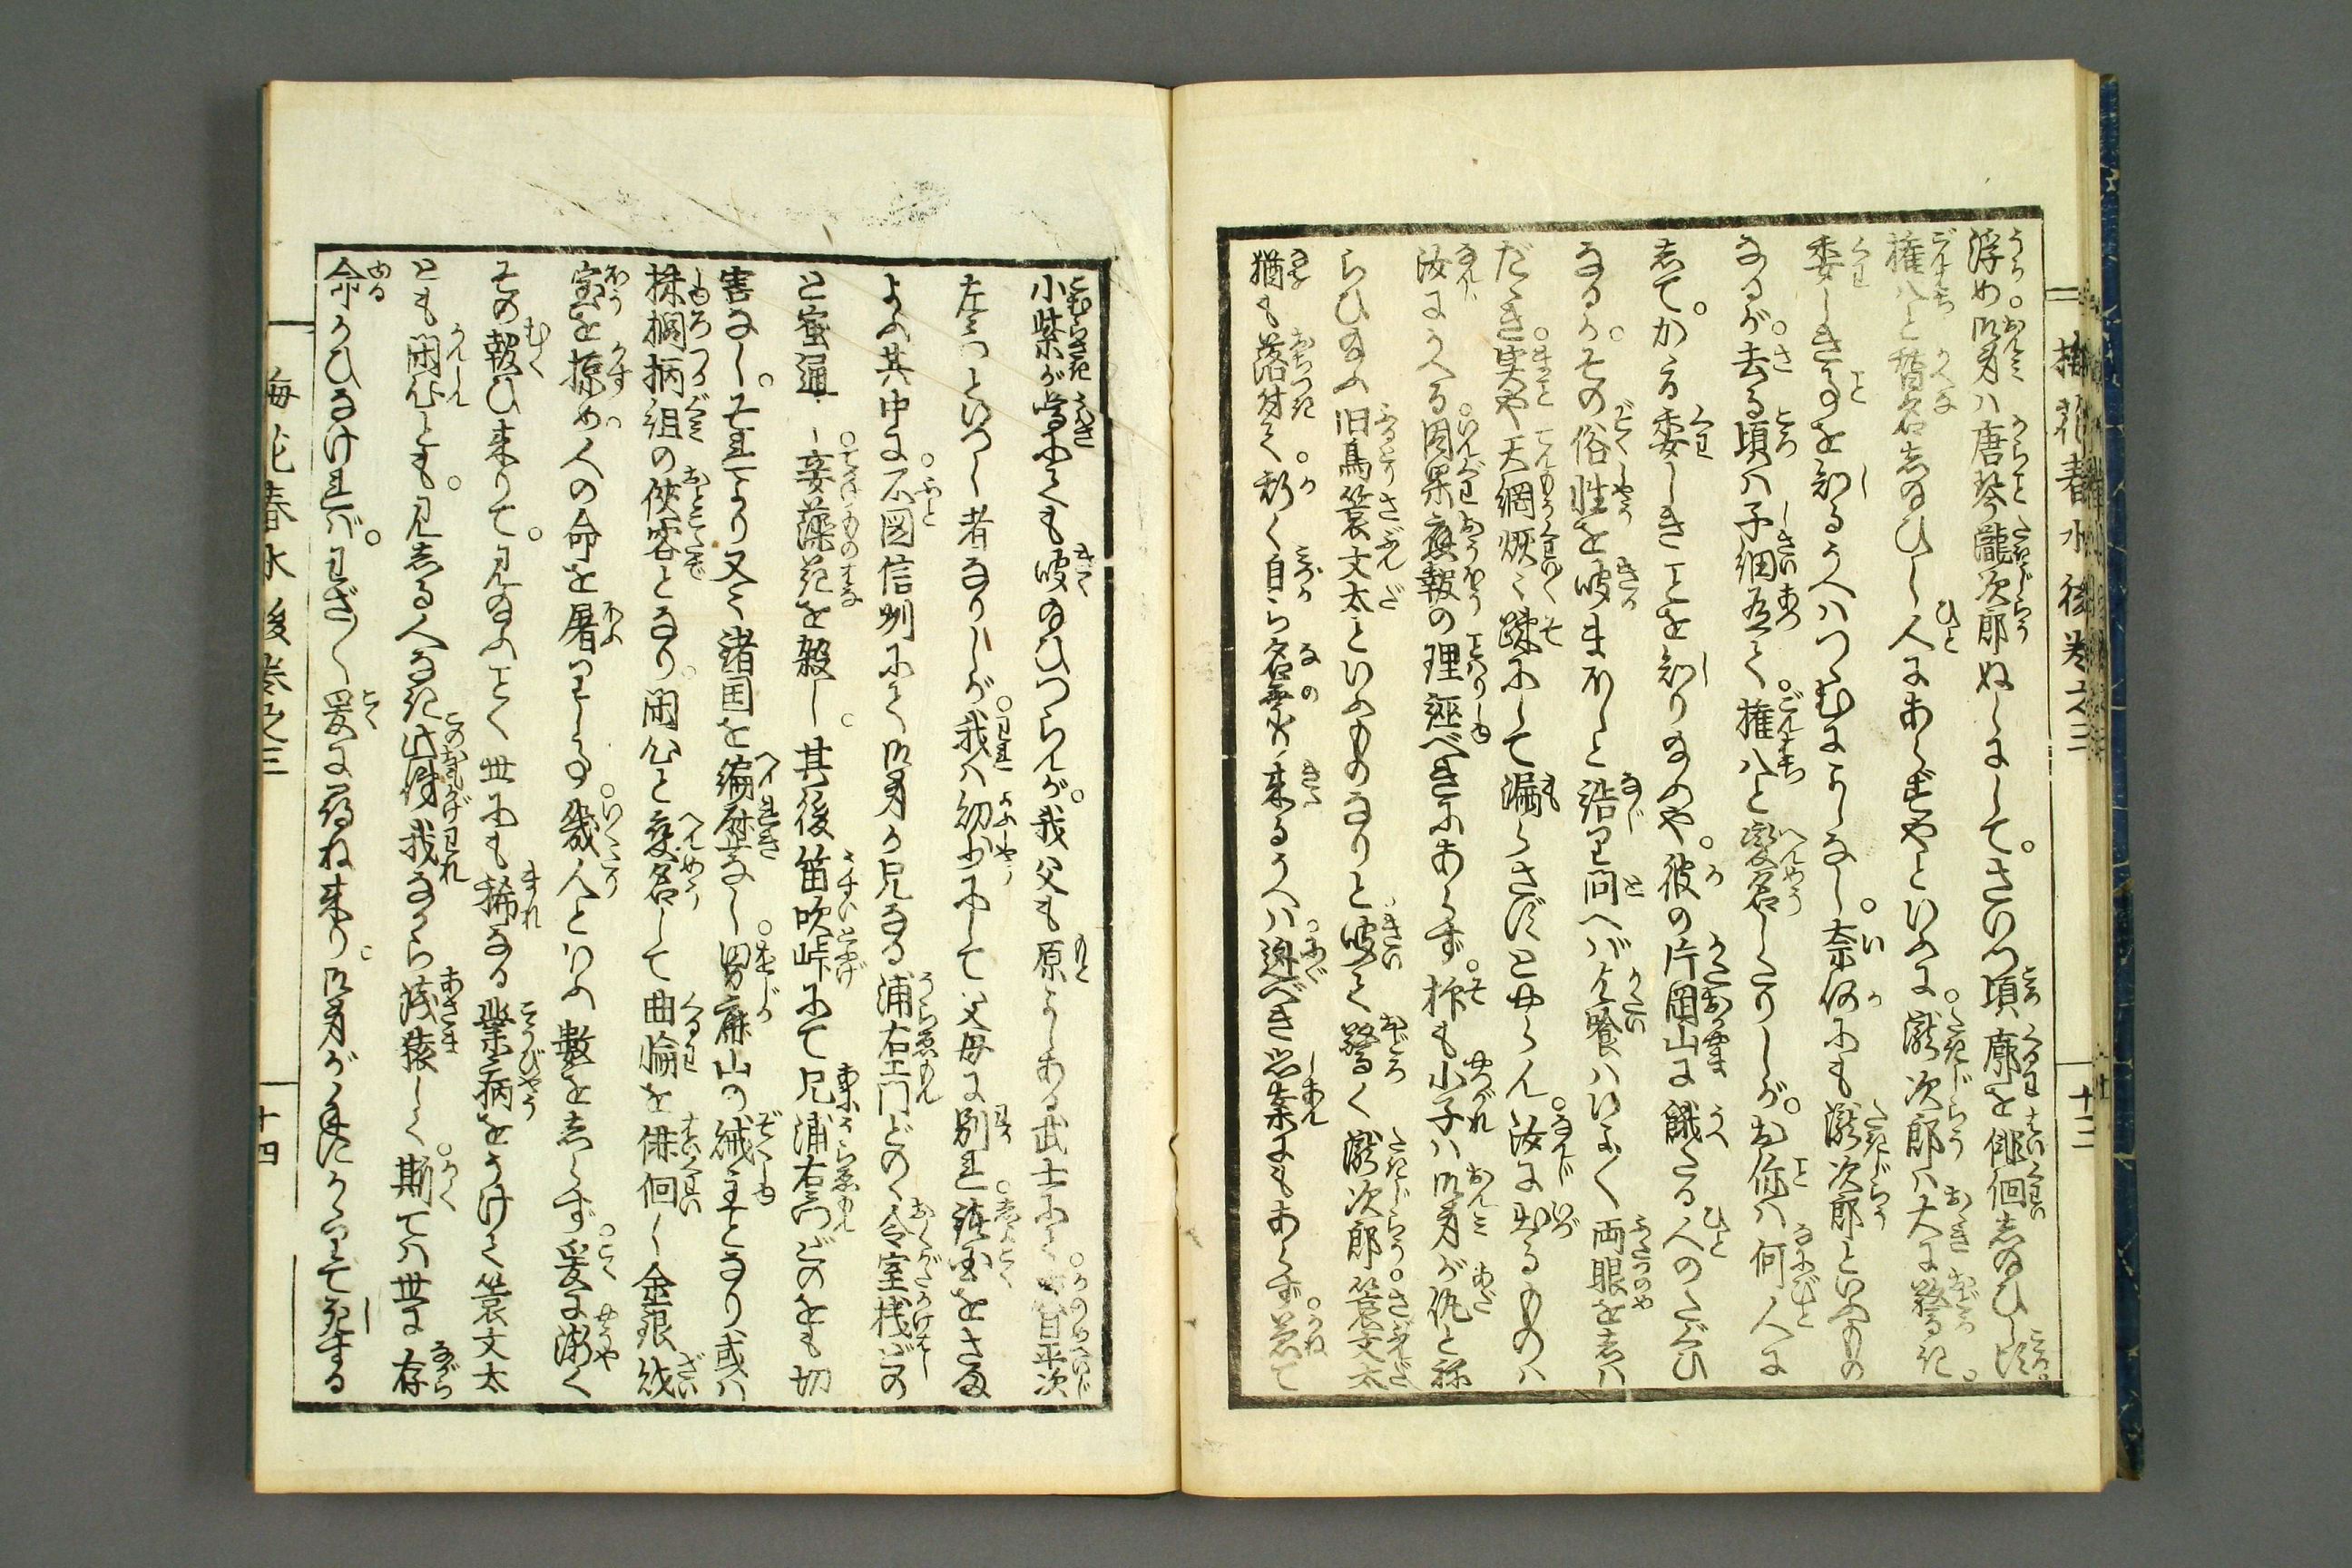 浮め。御身ハ唐琴瀧次郎ぬしにして。さいつ頃廓を俳徊志のひし頃。
権八と替名志のひし人にあらずやといふに。瀧次郎ハ大に驚き。
委しき事を知るうへハつゝむによしなし。奈何にも瀧次郎といふもの
なるが。去る頃ハ子細有て。権八と変名したりしが。お你ハ何人に
志て。かる委しきことを知り給ふや。彼の片岡山に餓たる人のたぐひ
なるか。その俗性を聞まほしと詰り問へバ乞食ハいよ〳〵両眼を志ハ
だゝき。実や天網恢々疎にして漏らさずとやらん。汝に出るものハ
汝にかへる。因果應報の理誣べきにあらず。抑も小子ハ御身が仇と称
らひ給ふ旧鳥蓑文太といふものなりと聞て驚く瀧次郎。蓑文太
猶も落付て。斯く自ら名乗り来るうへハ。迯べき心案にもあらず。兼て
小紫が噂にても聞給ひつらんが。我父も原よしある武士にて
左五といつし者なりしが。我ハ幼少にして父母に別れ。諸国をさま
よふ其中に。不図信州にて御身の兄なる浦右エ門どのゝ令室桟どの
と蜜通し。妾藻花を殺し。其後笛吹峠にて兄浦右エ門どのをも切
害なし。それより又々諸国を編歴なし。男麻山の緘主となり或ハ
棕櫚柄組の侠客となり。閑心と変名して曲輪を俳徊し金銀財
宝を掠め。人の命を屠りし事。幾人といふ数を志らず。爰に漸く
その報ひ来りて。見給ふごとく世にも稀なる業病をうけて蓑文太
とも閑心とも。見志る人なき此姿我ながら浅猿しく。斯てハ世に存
命かひなけれバ。わざ〳〵爰に尋ね来り。御身が手にかゝりて死する
梅花春水後巻之三
十三
梅花春水後巻之三
十四